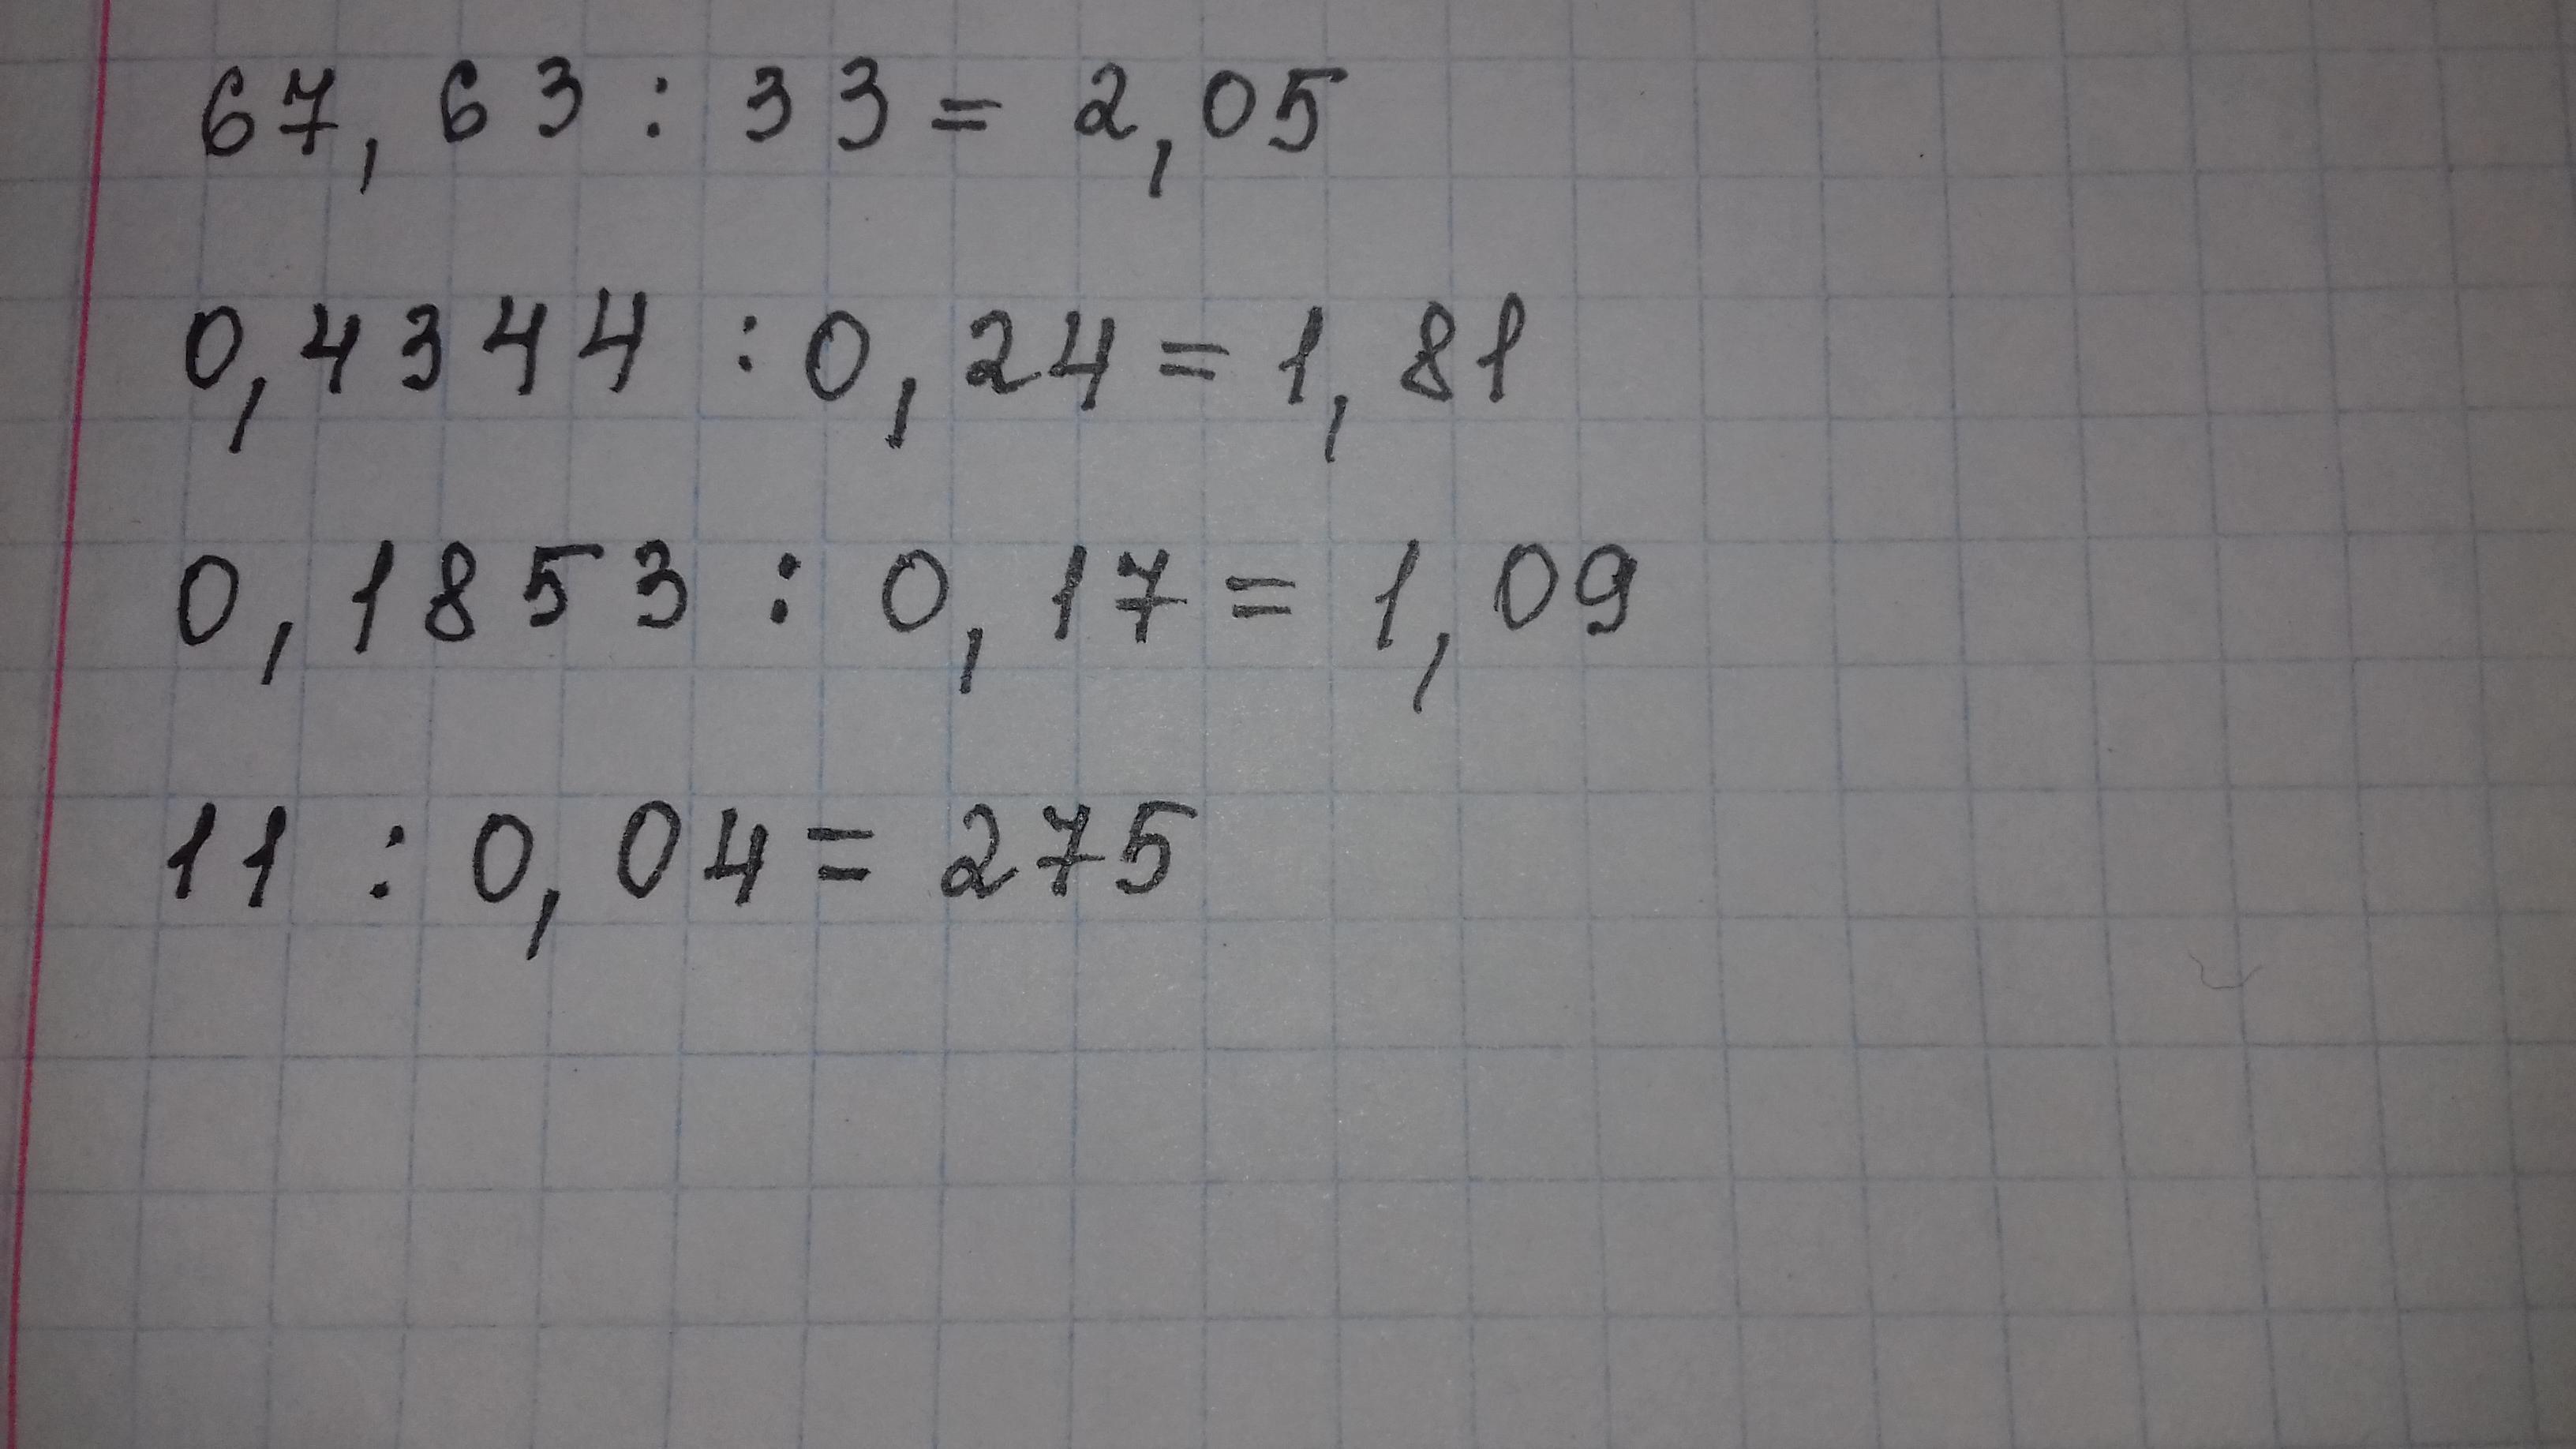 67,63 : 33 = 2,05
0,4344 : 0,24 = 1,81
0,1853 : 0,17 = 1,09
11 : 0,04 = 275